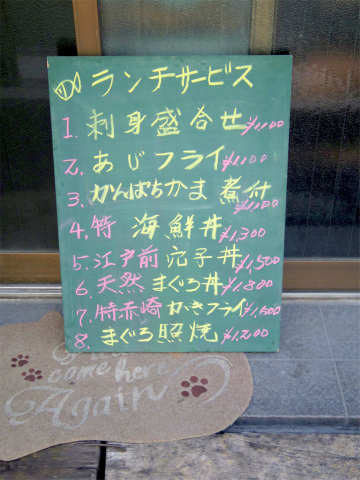 ランチサービス
1. 刺身盛合せ ¥1,100
2. あじフライ ¥1,100
3. かんぱちかま煮付 ¥1,100
4. 特 海鮮丼 ¥1,300
5. 江戸前 穴子丼 ¥1,500
6. 天然 まぐろ丼 ¥1,800
7. 特赤崎 かきフライ ¥1,500
8. まぐろ照焼 ¥1,200
come here
Again